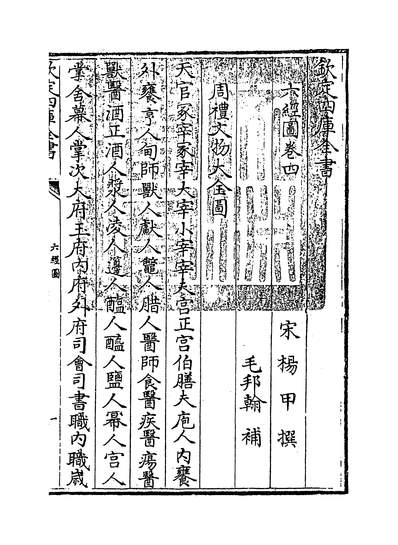 欽定四庫全書
六經圖卷四
宋 楊甲 撰
毛邦翰 補
周禮文物大全圖
天官冢宰冢宰大宰小宰宰夫宮正宮伯膳夫庖人內饔
外饔亨人甸師獸人䱷人鼈人腊人醫師食醫疾醫瘍醫
獸醫酒正酒人漿人凌人籩人醢人醯人鹽人冪人宮人
掌舍幕人掌次大府玉府內府外府司會司書職內職嵗
欽定四庫全書
六經圖
一